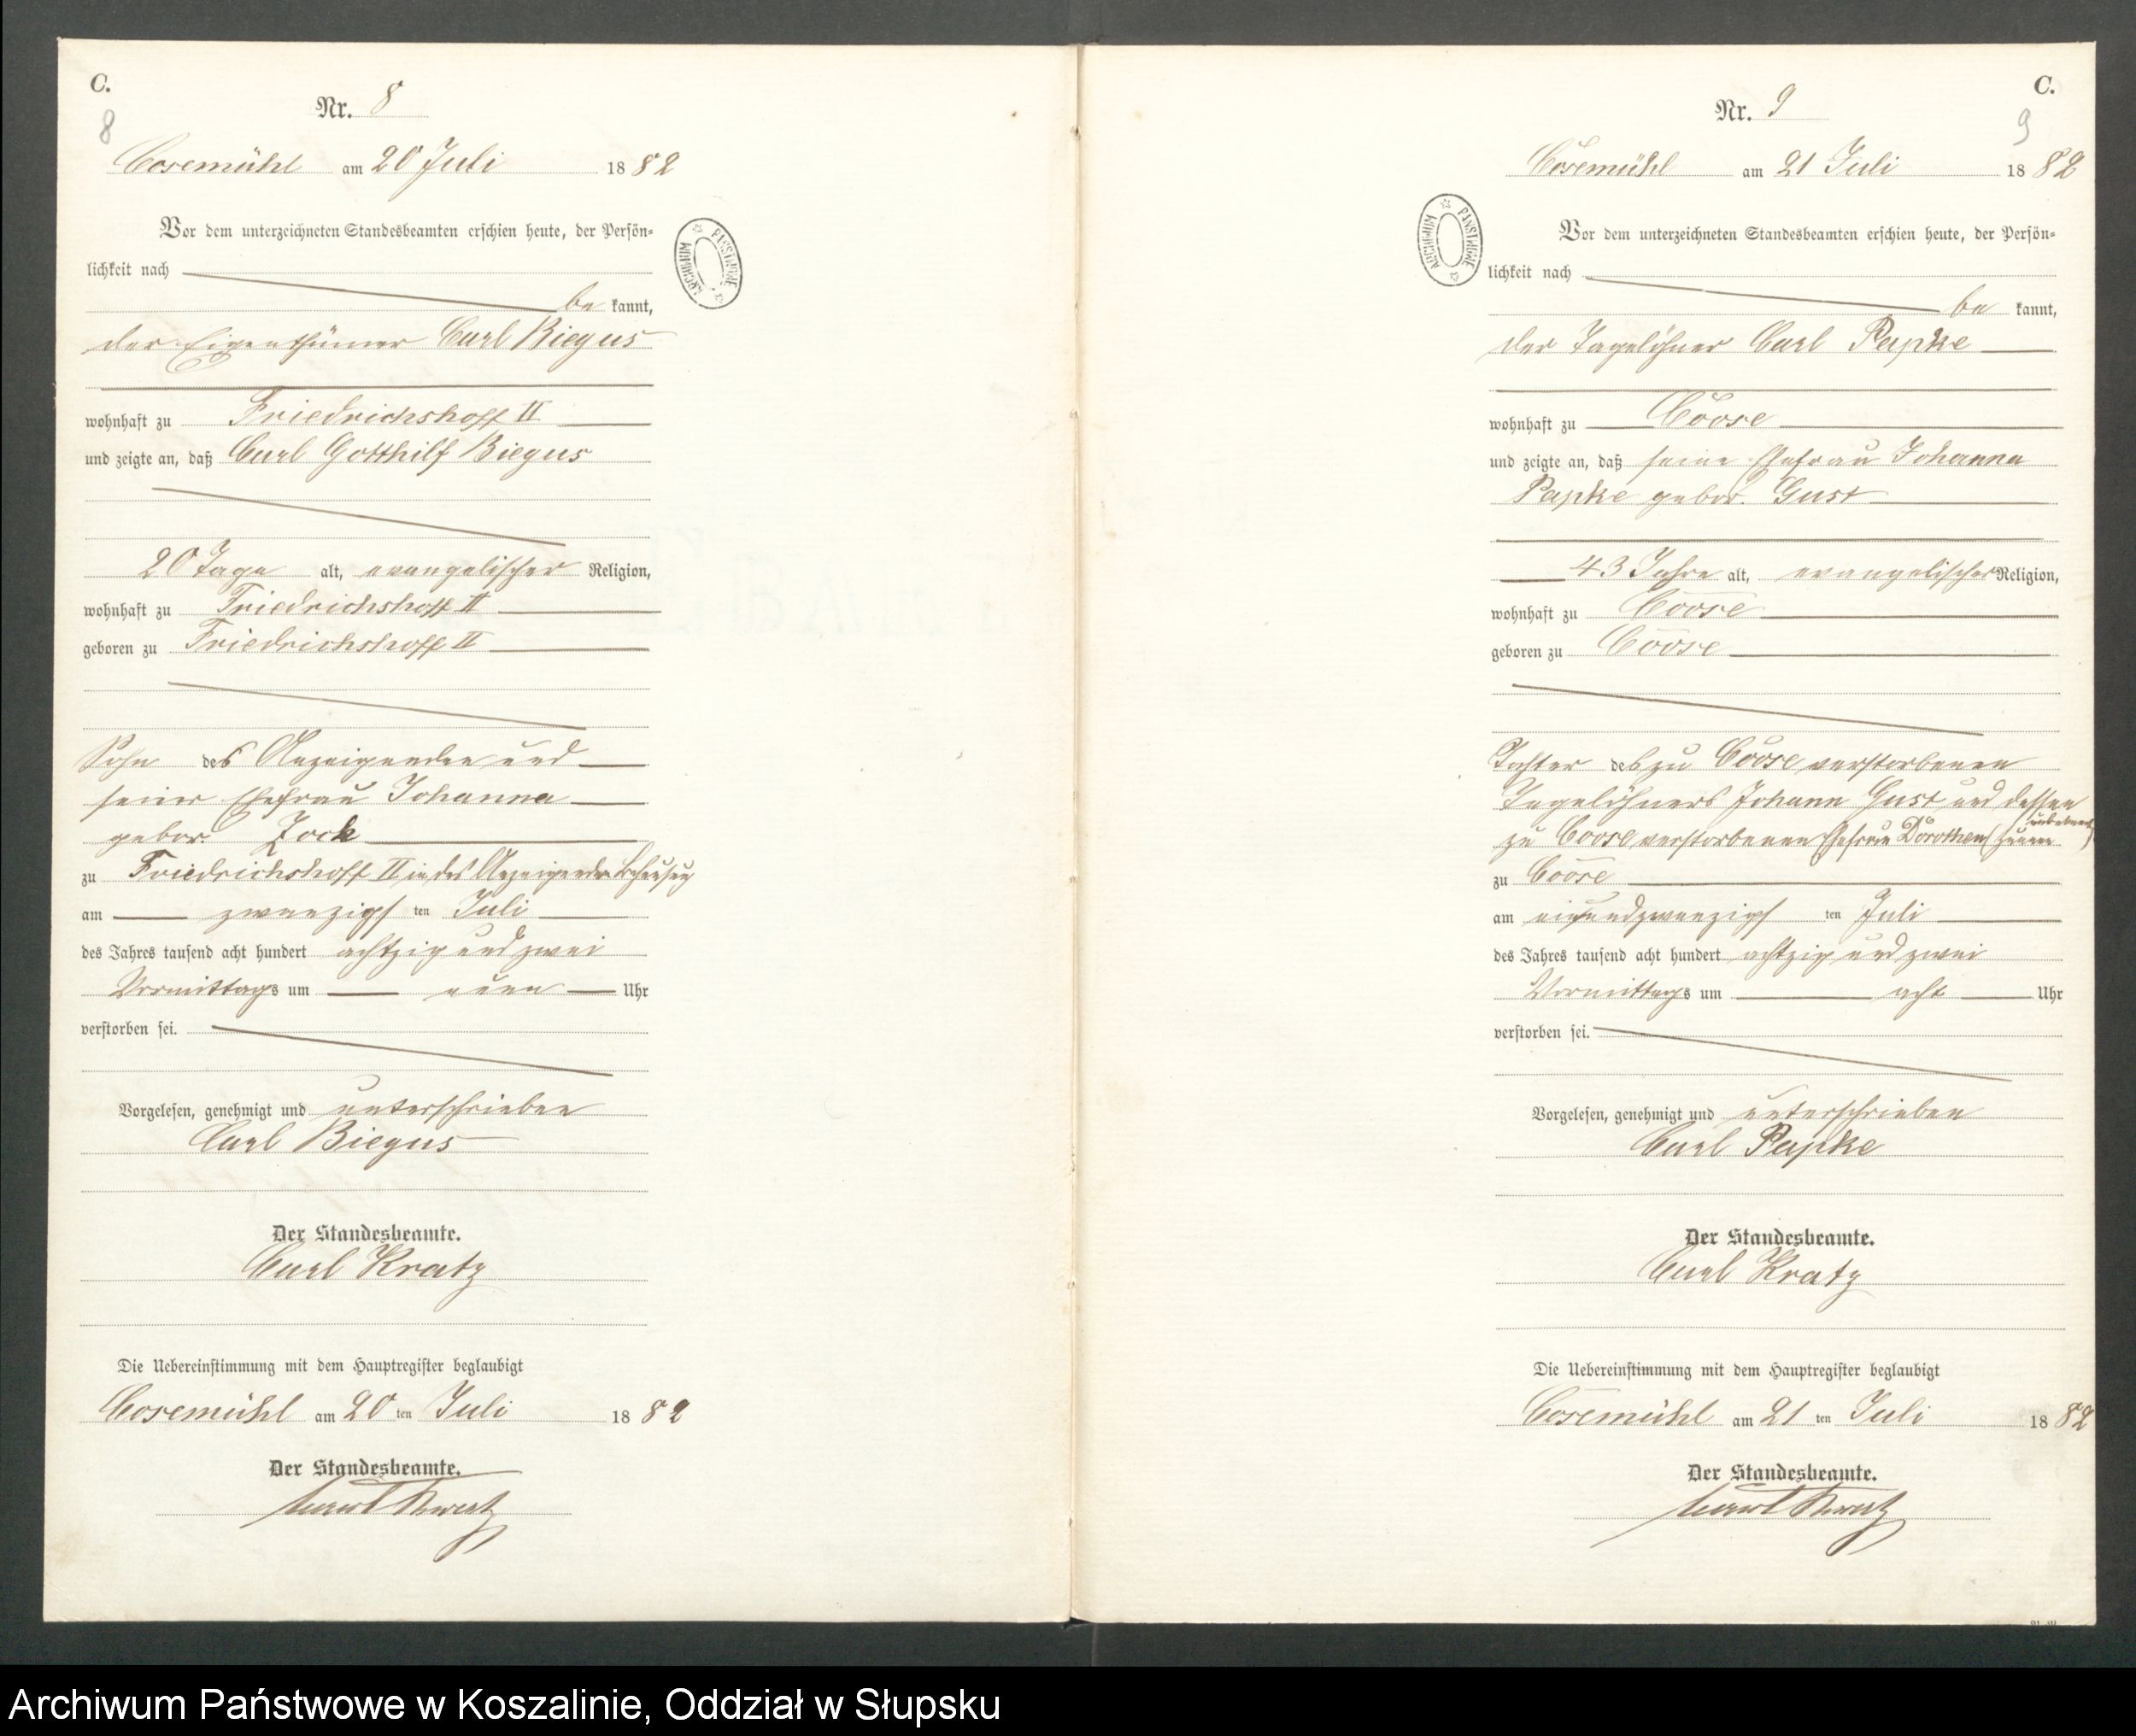 C.
8
Nr. 8
Cosemühl am 20 Juli 1882
ARCHIWUM PAŃSTWOWE
Vor dem unterzeichneten Standesbeamten erschien heute, der Persön-
lichkeit nach
be kannt,
der Eigenthümer Carl Biegus
wohnhaft zu Friedrichshoff II
und zeigte an, daß Carl Gotthilf Biegus
20 Tage alt, evangelischer Religion,
wohnhaft zu Friedrichshoff II
geboren zu Friedrichshoff II
Sohn des Anzeigenden und
seiner Ehefrau Johanna
gebor. Zock
zu Friedrichshoff II in des Anzeigenden Behausung
am zwanzigs ten Juli
des Jahres tausend acht hundert achtzig und zwei
Vormittags um neun Uhr
verstorben sei.
Vorgelesen, genehmigt und unterschrieben
Carl Biegus
Der Standesbeamte.
Carl Kratz
Die Uebereinstimmung mit dem Hauptregister beglaubigt
Cosemühl am 20 ten Juli 1882
Der Standesbeamte.
Carl Kratz
C.
9
Nr. 9
Cosemühl am 21 Juli 1882
ARCHIWUM PAŃSTWOWE
Vor dem unterzeichneten Standesbeamten erschien heute, der Persön-
lichkeit nach
be kannt,
der Tagelöhner Carl Papke
wohnhaft zu Coose
und zeigte an, daß seine Ehefrau Johanna
Papke gebor. Gust
43 Jahre alt, evangelischer Religion,
wohnhaft zu Coose
geboren zu Coose
Tochter des zu Coose verstorbenen
Tagelöhners Johann Gust und dessen
zu Coose verstorbenen Ehefrau Dorothea
zu Coose
am einundzwanzigs ten Juli
des Jahres tausend acht hundert achtzig und zwei
Vormittags um acht Uhr
verstorben sei.
Vorgelesen, genehmigt und unterschrieben
Carl Papke
Der Standesbeamte.
Carl Kratz
Die Uebereinstimmung mit dem Hauptregister beglaubigt
Cosemühl am 21 ten Juli 1882
Der Standesbeamte.
Carl Kratz
Archiwum Państwowe w Koszalinie, Oddział w Słupsku